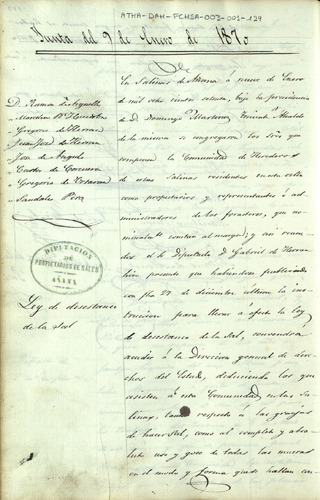 ATHA-DAH-FCHSA-003-001-129
Junta del 9 de Enero de 1870
En Salinas de Añana á nueve de Enero
de mil ocho cientos setenta, bajo la presidencia
de D. Domingo Alcalde
de la misma se congregaron los Sres que
componen la Comunidad de Herederos
de estas Salinas residentes en esta villa
como propietarios y representantes ó ad-
ministradores de los foraneos, que no-
minalmte constan al margen; y asi reuni-
dos el Sr Diputado D. Gabriel de Herran
hizo presente que habiendose publicado
con fha 27 de diciembre ultimo la ins-
truccion para llevar á efecto la Ley
de desestanco de la sal, convendria
acudir á la Direccion general de dere-
chos del Estado, deduciendo los que
asisten á esta Comunidad en las Sa-
linas, tanto respecto á las granjas
de hacer sal, como al completo y abso-
luto uso y goce de todas las mueras
en el modo y forma
D. Ramon de
Gregorio de Herran
Juan José de Herran
José de Angulo
Castor de Corcuera
Gregorio de
Perez
DIPUTACION
DE
PROPIETARIOS DE SALEN
AÑANA
Ley de desestanco
de la sal